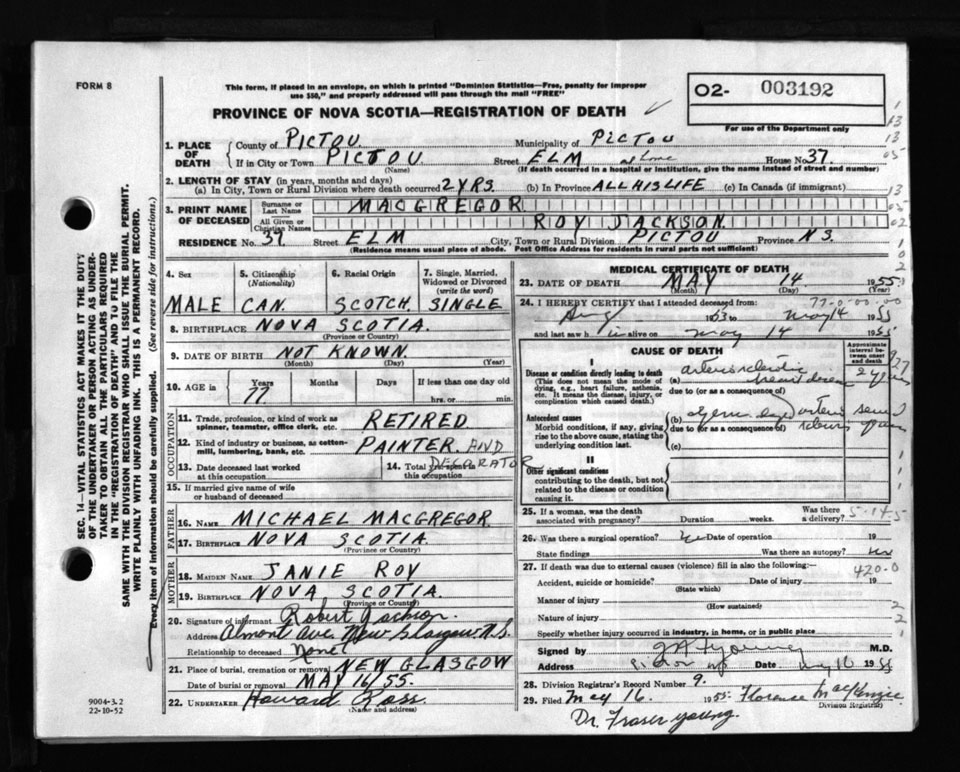 FORM 8
This form, if placed in an envelope, on which is printed "Dominion Statistics—Free, penalty for improper
use $50," and properly addressed will pass through the mail "FREE"
PROVINCE OF NOVA SCOTIA—REGISTRATION OF DEATH
O2- 003192
For use of the Department only
SEC. 14—VITAL STATISTICS ACT MAKES IT THE DUTY
OF THE UNDERTAKER OR PERSON ACTING AS UNDER-
TAKER TO OBTAIN ALL THE PARTICULARS REQUIRED
IN THE "REGISTRATION OF DEATH" AND TO FILE THE
SAME WITH THE DIVISION REGISTRAR WHO SHALL ISSUE THE BURIAL PERMIT.
WRITE PLAINLY WITH UNFADING INK. THIS IS A PERMANENT RECORD.
Every item of information should be carefully supplied. (See reverse side for instructions.)
1. PLACE OF DEATH
County of PICTOU Municipality of PICTOU
If in City or Town PICTOU (Name) Street ELM at home House No. 37.
(If death occurred in a hospital or institution, give the name instead of street and number)
2. LENGTH OF STAY (in years, months and days)
(a) In City, Town or Rural Division where death occurred 2 YRS. (b) In Province ALL HIS LIFE (c) In Canada (if immigrant)
3. PRINT NAME OF DECEASED
Surname or Last Name MACGREGOR
All Given or Christian Names ROY JACKSON
RESIDENCE No. 37 Street ELM City, Town or Rural Division PICTOU Province N.S.
(Residence means usual place of abode. Post Office Address for residents in rural parts not sufficient)
4. Sex MALE
5. Citizenship (Nationality) CAN.
6. Racial Origin SCOTCH
7. Single, Married, Widowed or Divorced (write the word) SINGLE
8. BIRTHPLACE NOVA SCOTIA (Province or Country)
9. DATE OF BIRTH NOT KNOWN (Month) (Day) (Year)
10. AGE in Years 77 Months Days If less than one day old hrs. or min.
OCCUPATION
11. Trade, profession, or kind of work as spinner, teamster, office clerk, etc. RETIRED
12. Kind of industry or business, as cotten-mill, lumbering, bank, etc. PAINTER AND DECORATOR
13. Date deceased last worked at this occupation
14. Total yrs. spent in this occupation
15. If married give name of wife or husband of deceased
FATHER
16. NAME MICHAEL MACGREGOR
17. BIRTHPLACE NOVA SCOTIA (Province or Country)
MOTHER
18. MAIDEN NAME JANIE ROY
19. BIRTHPLACE NOVA SCOTIA (Province or Country)
20. Signature of informant Robert Jackson
Address Almont Ave. New Glasgow N.S.
Relationship to deceased None
21. Place of burial, cremation or removal NEW GLASGOW
Date of burial or removal MAY 16/55.
22. UNDERTAKER Howard Ross (Name and address)
MEDICAL CERTIFICATE OF DEATH
23. DATE OF DEATH MAY 14 1955 (Month) (Day) (Year)
77-0-00-00
24. I HEREBY CERTIFY that I attended deceased from:
Aug 1953 to May 14 1955
and last saw h im alive on May 14 1955
CAUSE OF DEATH
Approximate interval between onset and death
I
Disease or condition directly leading to death
(This does not mean the mode of dying, e.g., heart failure, asthenia, etc. It means the disease, injury, or complication which caused death.)
(a) arteriosclerotic heart disease 2 years
due to (or as a consequence of)
Antecedent causes
Morbid conditions, if any, giving rise to the above cause, stating the underlying condition last.
(b)
due to (or as a consequence of)
(c)
II
Other significant conditions
contributing to the death, but not related to the disease or condition causing it.
25. If a woman, was the death associated with pregnancy? Duration weeks. Was there a delivery?
26. Was there a surgical operation? Date of operation 19
State findings Was there an autopsy? no
27. If death was due to external causes (violence) fill in also the following:—
420-0
Accident, suicide or homicide? (State which) Date of injury 19
Manner of injury (How sustained)
Nature of injury
Specify whether injury occurred in industry, in home, or in public place
Signed by Young M.D.
Address Pictou NS Date May 16 1955
28. Division Registrar's Record Number 9.
29. Filed May 16 1955 Florence MacKenzie
Division Registrar
Dr. Fraser Young.
9004-3.2
22-10-52